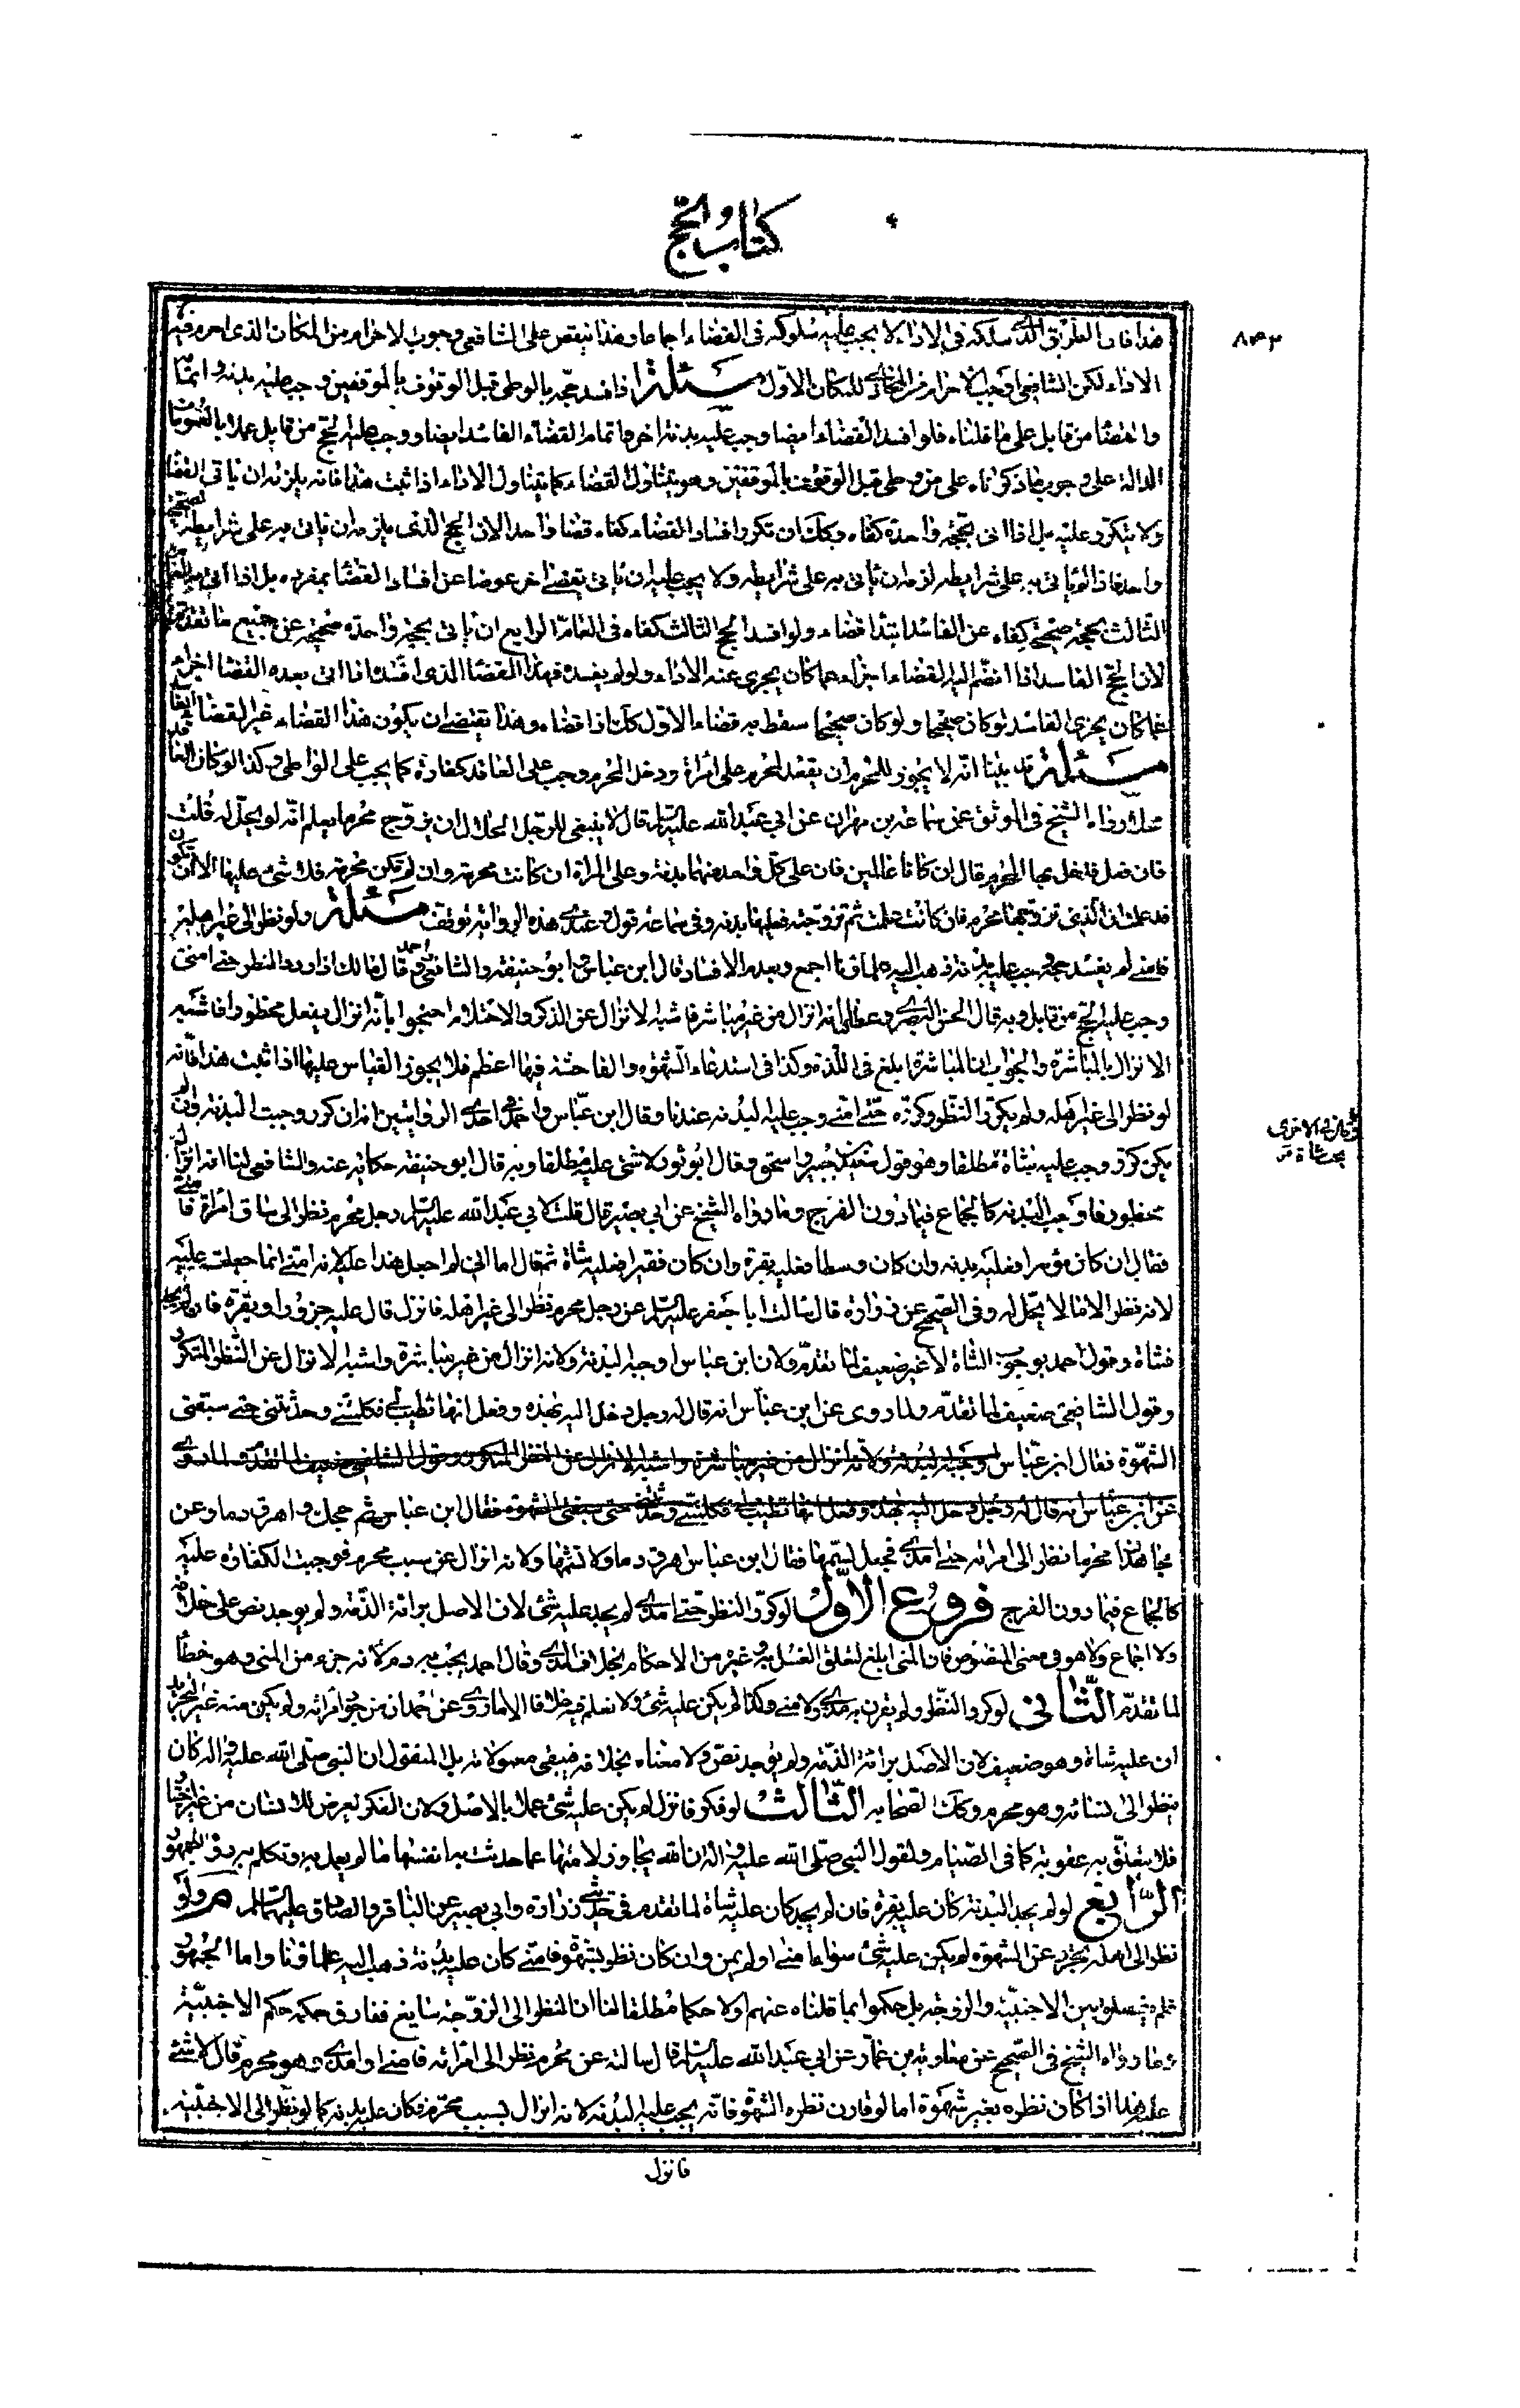 كتاب الحج
٨٤٢
هذا فان الطريق الذى سلكه فى الاداء لا يجب عليه سلوكه فى القضاء اجماعا وهذا ينقض على الشافعى وجوب الاحرام من المكان الذى احرم فيه
الاداء لكن الشافعى اوجب الاحرام من المكان الاول مسئلة اذا افسد حجه بالوطى قبل الوقوف بالموقفين وجب عليه بدنة واتمامه
والقضاء من قابل على ما قلناه فلو افسد القضاء ايضا وجب عليه بدنة اخرى واتمام القضاء الفاسد ايضا ووجب عليه الحج من قابل عملا بالعمومات
الدالة على وجوب ما ذكرناه على من وطى قبل الوقوف بالموقفين وهو يتناول القضاء كما يتناول الاداء اذا ثبت هذا فانه يلزمه ان ياتى بالقضاء
ولا يتكرر عليه بل اذا اتى بحجة واحدة كفاه وكذلك ان تكرر افساد القضاء كفاه قضاء واحد لان الحج الذى يلزمه ان ياتى به على شرايطه
واحد فاذا لم يأتى به على شرايطه لزمه ان يأتى به على شرايطه ولا يجب عليه ان يأتى بقضاء اخر عوضا عن افساد القضاء بمفرده بل اذا اتى فى السنة
الثالثة بحجة صحيحة كفاه عن الفاسد ابتداء وقضاء ولو افسد الحج الثالث كفاه فى العام الرابع ان ياتى بحجة واحدة صحيحة عن جميع ما تقدم
لان الحج الفاسد اذا انضم اليه القضاء اجزاء عما كان يجزى عنه الاداء ولو لم يفسده فهذا القضاء الذى افسده اذا اتى بعده القضاء اجزاه
عما كان يجزى الفاسد لو كان صحيحا ولو كان صحيحا سقط به قضاء الاول كذلك اذا قضاه وهذا يقتضى ان يكون هذا القضاء غير القضاء
مسئلة قد بينا انه لا يجوز للمحرم ان يعقد لمحرم على امراة ودخل المحرم وجب على العاقد كفارة كما يجب على الواطى وكذا لو كان العاقد
محلا رواه الشيخ فى الموثق عن سماعة بن مهران عن ابى عبد الله عليه السلام قال لا ينبغى للرجل الحلال ان يزوج محرما يعلم انه لا يحل له قلت
فان فعل فدخل بها المحرم قال ان كانا عالمين فان على كل واحد منهما بدنة وعلى المراة ان كانت محرمة وان لم تكن محرمة فلا شىء عليها الا ان تكون
قد علمت ان الذى تزوجها محرم فان كانت علمت ثم تزوجته فعليها بدنة وفى سماعة قول وعندى فى هذه الرواية توقف مسئلة ولو نظر الى غير اهله
فامنى لم يفسد حجه ووجب عليه بدنة ذهب اليه علماؤنا اجمع وبعدم الافساد قال ابن عباس وابو حنيفة والشافعى واحمد وقال مالك اذا ردد النظر حتى امنى
وجب عليه الحج من قابل وبه قال الحسن البصرى وعطا لنا انه انزال من غير مباشرة فاشبه الانزال عن الذكر والاحتلام احتجوا بانه انزال بفعل محظور فاشبه
الانزال بالمباشرة والجواب ان المباشرة ابلغ فى اللذة وكذا فى استدعاء الشهوة والفاحشة فيها اعظم فلا يجوز القياس عليها اذا ثبت هذا فانه
لو نظر الى غير اهله ولم يكرر النظر وكرره حتى امنى وجب عليه البدنة عندنا وقال ابن عباس واحمد فى احدى الروايتين ان كرر وجبت البدنة وان لم
يكن كرر وجب عليه شاة مطلقا وهو قول سعيد بن جبير واسحق وقال ابو ثور لا شىء عليه مطلقا وبه قال ابو حنيفة حكاية عنه والشافعى لنا انه انزال
محظور فاوجب البدنة كالجماع فيما دون الفرج وما رواه الشيخ عن ابى بصير قال قلت لابى عبد الله عليه السلام رجل محرم نظر الى ساق امراة فامنى
فقال ان كان موسرا فعليه بدنة وان كان وسطا فعليه بقرة وان كان فقيرا فعليه شاة ثم قال اما انى لم اجعل هذا عليه لانه امنى انما جعلت عليه
لانه نظر الى ما لا يحل له وفى الصحيح عن زرارة قال سالت ابا جعفر عليه السلام عن رجل محرم نظر الى غير اهله فانزل قال عليه جزور او بقرة فان لم يجد
فشاة وقول احمد بوجوب الشاة لا غير ضعيف لما تقدم ولان ابن عباس اوجب البدنة ولانه انزال من غير مباشرة واشبه الانزال عن النظر المتكرر
وقول الشافعى ضعيف لما تقدم ولما روى عن ابن عباس انه قال له رجل دخل اليه بهذه وفعل انها تطيب لى فكلمتنى وحدثتنى حتى سبقتنى
الشهوة فقال ابن عباس اوجب البدنة ولانه انزال من غير مباشرة واشبه الانزال عن النظر المتكرر وقول الشافعى ضعيف لما تقدم ولما روى
عن ابن عباس انه قال له رجل دخل اليه بهذه وفعل انها تطيب لى فكلمتنى وحدثتنى حتى سبقتنى الشهوة فقال ابن عباس تم حجك واهرق دما وعن
مجاهد ان محرما نظر الى امراته حتى امذى فجعل يشتمها فقال ابن عباس اهرق دما ولا تشتمها ولانه انزال عن سبب محرم فوجبت الكفارة عليه
كالجماع فيما دون الفرج فروع الاول لو كرر النظر حتى امذى لم يجب عليه شىء لان الاصل براءة الذمة ولم يوجد نص على خلافه
ولا اجماع ولا هو فى معنى المنصوص فان المنى ابلغ لتعلق الغسل به وغيره من الاحكام بخلاف المذى وقال احمد يجب به دم لانه جزء من المنى وهو خطأ
لما تقدم الثانى لو كرر النظر ولم يقرن به مذى ولا منى وكذا لم يكن عليه شىء ولا نعلم فيه خلافا الا ما روى عن احمد ان من جرد امراته ولم يكن منه غير التجريد
ان عليه شاة وهو ضعيف لان الاصل براءة الذمة ولم يوجد نص ولا معناه بخلافه فيبقى معمولا به بل المنقول ان النبى صلى الله عليه واله كان
ينظر الى نسائه وهو محرم وكذلك الصحابة الثالث لو فكر فانزل لم يكن عليه شىء عملا بالاصل ولان الفكر يعرض للانسان من غير اختياره
فلا يتعلق به عقوبة كما فى الصيام ولقول النبى صلى الله عليه واله ان الله تجاوز لامتى عما حدثت به انفسها ما لم يعمل به وتكلم به رواه الجمهور
الرابع لو لم يجد البدنة كان عليه بقرة فان لم يجد كان عليه شاة لما تقدم فى حديثى زرارة وابى بصير عن الباقر والصادق عليهما السلام م ولو
نظر الى اهله بتجرد عن الشهوة لم يكن عليه شىء سواء امنى او لم يمن وان كان نظر بشهوة فامنى كان عليه بدنة ذهب اليه علماؤنا واما الجمهور
فلم يفصلوا بين الاجنبية والزوجة بل حكموا بما قلناه عنهم اولا حكما مطلقا لنا ان النظر الى الزوجة سايغ ففارق حكمه حكم الاجنبية
وما رواه الشيخ فى الصحيح عن معاوية بن عمار عن ابى عبد الله عليه السلام قال سالته عن محرم نظر الى امراته فامنى او امذى وهو محرم قال لا شىء
عليه هذا اذا كان نظره بغير شهوة اما لو قارن نظره الشهوة فانه يجب عليه البدنة لانه انزال بسبب محرم فكان عليه بدنة كما لو نظر الى الاجنبية
فانزل